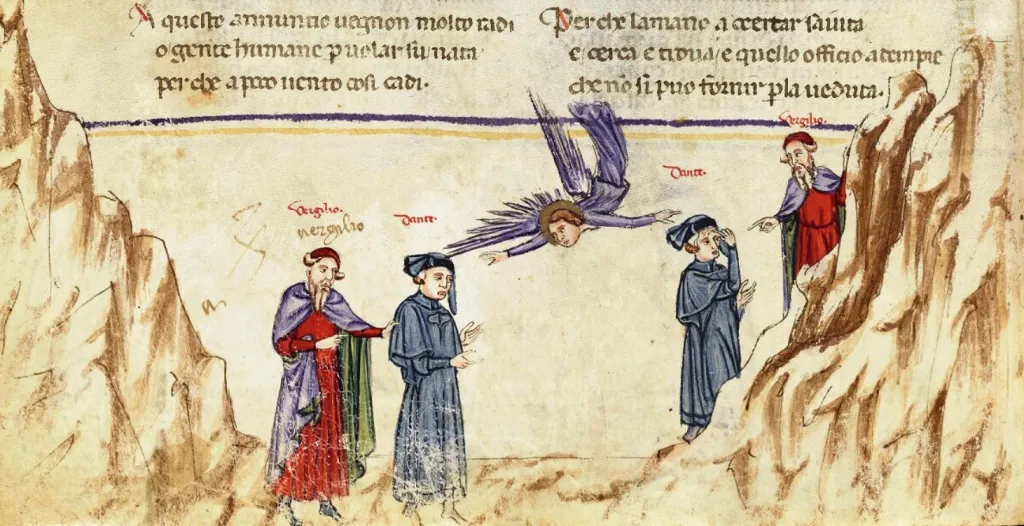 A questo annuncio vegnon molto radi
o gente humane p uolar su nata
per che a poco uento cosi cadi.
Per che la mano a certar saiuta
e cerca e troua e quello officio adempie
che no si puo fornir p la ueduta.
Vergilio.
Vergilio.
vergilio
Dante.
Dante.